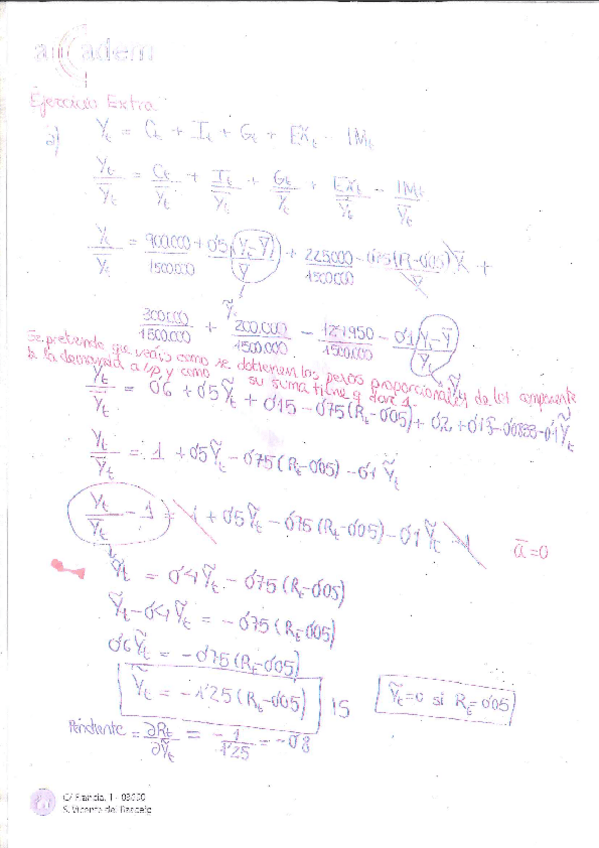 Ejercicio Extra
a) Yt = Ct + It + Gt + EXt - IMt
Yt/Ȳt = Ct/Ȳt + It/Ȳt + Gt/Ȳt + EXt/Ȳt - IMt/Ȳt
Yt/Ȳt = 900.000/1500.000 + 0'5(Yt-Ȳ)/Ȳ + 225.000/1500.000 - 0'75(R-0'05)Ȳ/Ȳ +
Ỹt
300.000/1500.000 + 200.000/1500.000 - /1500.000 - 0'1(Yt-Ȳ)/Ȳt
Ỹt
Se pretende que veáis como se obtienen los pesos proporcionales de los componente
de la demanda a y como su suma tiene q dar 1
Yt/Ȳt = 0'6 + 0'5Ỹt + 0'15 - 0'75(Rt-0'05) + 0'2 + 0'13 - - 0'1Ỹt
Yt/Ȳt = 1 + 0'5Ỹt - 0'75(Rt-0'05) - 0'1Ỹt
Yt/Ȳt - 1 = 1 + 0'5Ỹt - 0'75(Rt-0'05) - 0'1Ỹt - 1
ā=0
Ỹt = 0'4Ỹt - 0'75(Rt-0'05)
Ỹt - 0'4Ỹt = - 0'75(Rt-0'05)
0'6Ỹt = - 0'75(Rt-0'05)
Ỹt = - 1'25(Rt-0'05) IS
Ỹt=0 si Rt=0'05
Pendiente = ∂Rt/∂Ỹt = - 1/1'25 = - 0'8
C/ Francia, 1 - 03690
S. Vicente del Raspeig